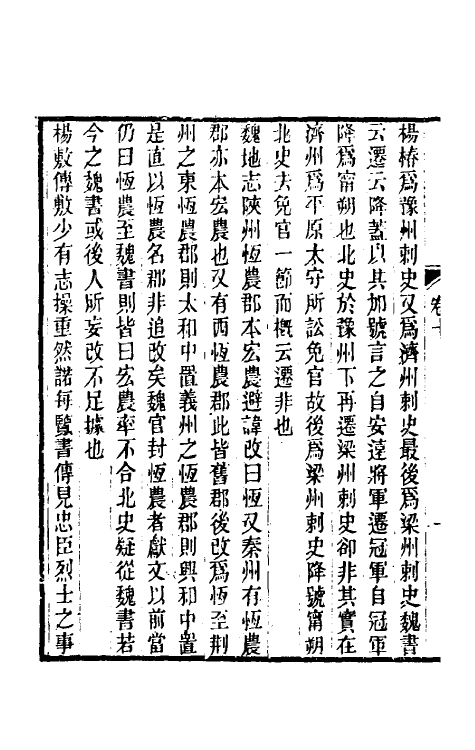 楊椿爲豫州刺史又爲濟州刺史最後爲梁州刺史魏書
云遷云降蓋以其加號言之自安遠將軍遷冠軍自冠軍
降爲甯朔也北史於豫州下再遷梁州刺史卻非其實在
濟州爲平原太守所訟免官故後爲梁州刺史降號甯朔
北史去免官一節而概云遷非也
魏地志陝州恆農郡本宏農避諱改曰恆又秦州有恆農
郡亦本宏農也又有西恆農郡此皆舊郡後改爲恆至荆
州之東恆農郡則太和中置義州之恆農郡則興和中置
是直以恆農名郡非追改矣魏官封恆農者獻文以前當
仍曰恆農至魏書則皆曰宏農率不合北史疑從魏書若
今之魏書或後人所妄改不足據也
楊敷傳敷少有志操重然諾每覽書傳見忠臣烈士之事
卷十
一